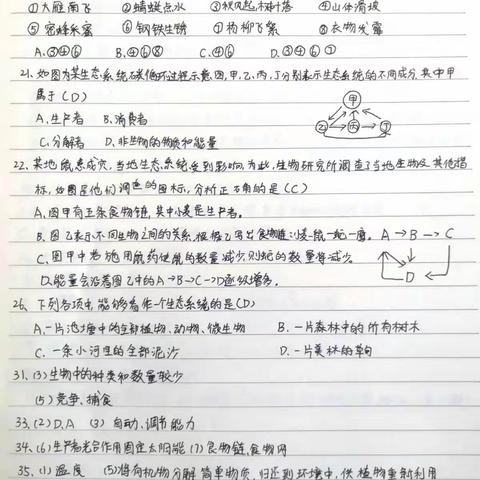 ①大雁南飞 ②蜻蜓点水 ③秋风起,树叶落 ④山体滑坡
⑤蜜蜂采蜜 ⑥钢铁生锈 ⑦杨柳飞絮 ⑧衣物发霉
A.③④⑥ B.④⑥⑧ C.④⑥ D.③④⑥⑦
21.如图为某生态系统碳循环过程示意图,甲、乙、丙、丁分别表示生态系统的不同成分,其中甲
属于(D)
A、生产者 B、消费者
C、分解者 D、非生物的物质和能量
甲
乙 丙 丁
22.某地鼠患成灾,当地生态系统受到影响,为此,生物研究所调查了当地生物及其他指
标,如图是他们调查的图标,分析正确的是(C)
A、图甲有五条食物链,其中小麦是生产者。
B、图乙表示不同生物之间的关系,根据乙写出食物链:小麦→鼠→蛇→鹰。
C、图甲中若施用鼠药使鼠的数量减少,则蛇的数量将减少
D、能量会沿着图乙中的A→B→C→D逐级增多。
A→B→C
D
26、下列各项中,能够看作一个生态系统的是(D)
A.一片池塘中的全部植物、动物、微生物 B.一片森林中的所有树木
C、一条小河里的全部泥沙 D.一片美林的草甸
31、(3)生物中的种类和数量较少
(5)竞争、捕食
33、(2)D、A (3)自动、调节能力
34、(6)生产者光合作用固定太阳能 (7)食物链,食物网
35、(1)温度 (5)将有机物分解简单物质,归还到环境中,供植物重新利用